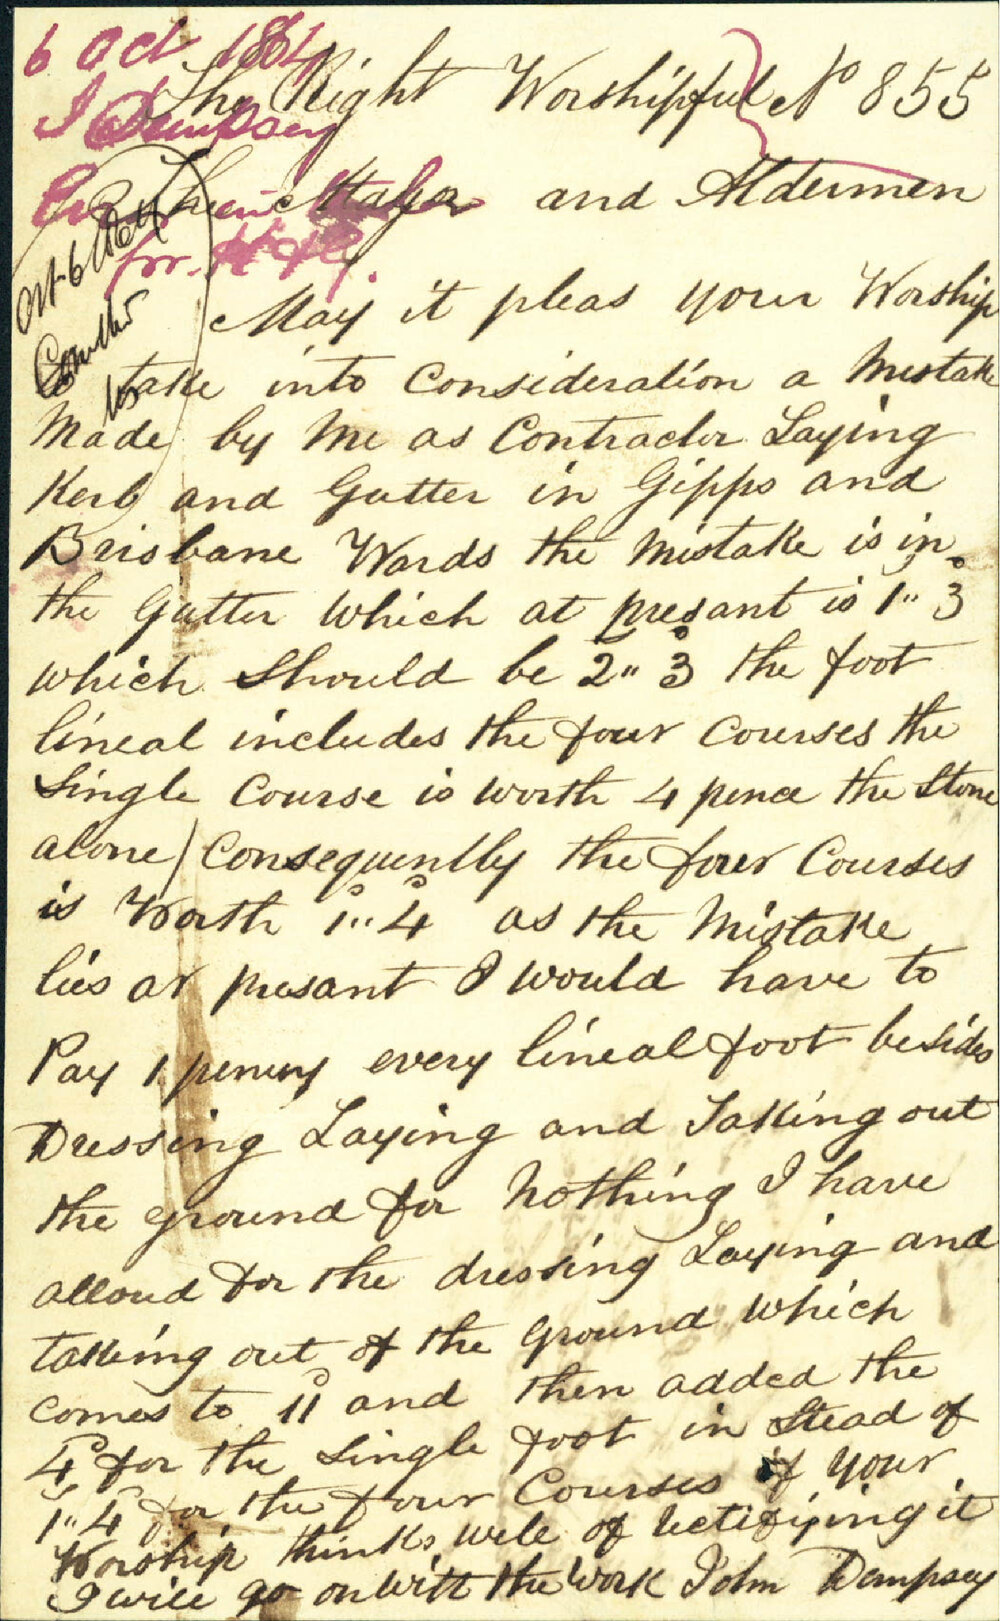 6 Oct 1864
J Dempsey
The Right Worshipful No 855
The Mayor and Aldermen
for
Oct 6 1864
May it pleas your Worship
take into Consideration a Mestake
Made by Me as Contractor Laying
Kerb and Gutter in Gipps and
Brisbane Wards the Mistake is in
the Gutter Which at presant is 1" 3
which Should be 2" 3 the foot
lineal includes the four Courses the
Single Course is worth 4 pence the Stone
alone) Consequently the four Courses
is Worth 1" 4 as the Mistake
lies at presant I would have to
Pay 1 penny every lineal foot besides
Dressing Laying and Taking out
the ground for Nothing I have
alloud for the dressing Laying and
taking out of the ground which
comes to 11 and then added the
4 for the Single foot in Stead of
1" 4 for the four Courses if your
Worship thinks well of rectifiying it
I will go on With the Work John Dempsey